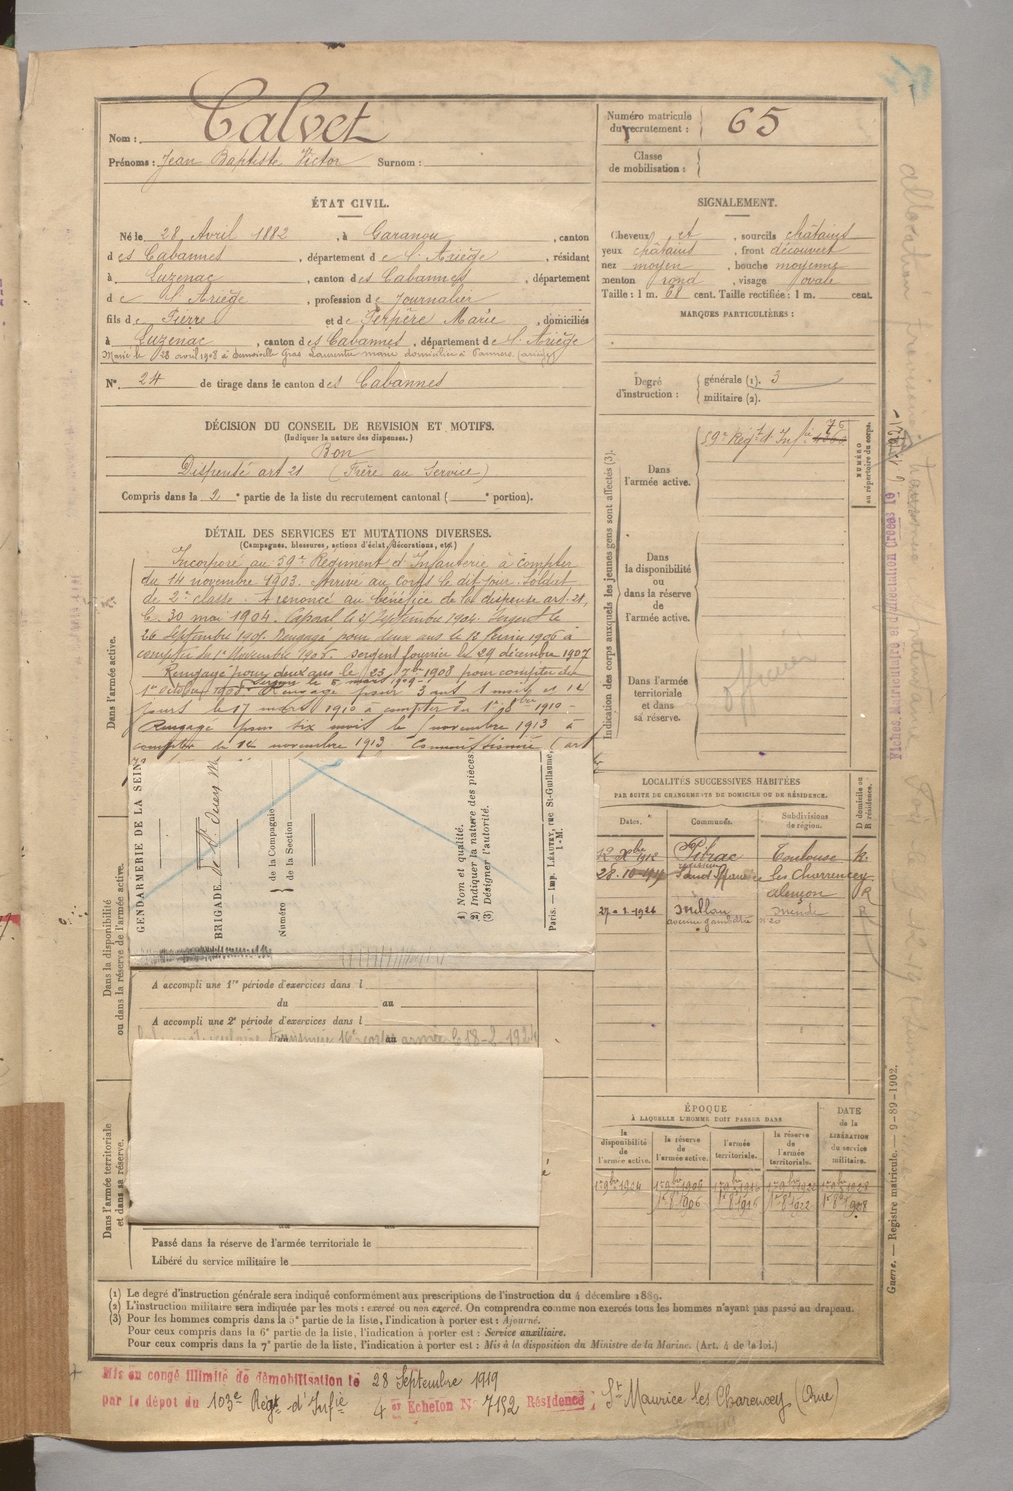 Nom : Calvet
Prénoms : Jean Baptiste Victor Surnom :
Numéro matricule
du recrutement : 65
Classe
de mobilisation :
ÉTAT CIVIL.
Né le 28 Avril 1882, à Garanou, canton
des Cabannes, département de l'Ariège, résidant
à Luzenac, canton des Cabannes, département
de l'Ariège, profession de Journalier
fils de Pierre et de Serpère Marie, domiciliés
à Luzenac, canton des Cabannes, département de l'Ariège
Marié le 28 avril 1908 à Demoiselle Gras Laurentie
N° 24 de tirage dans le canton des Cabannes
SIGNALEMENT.
Cheveux et, sourcils châtains
yeux châtains, front découvert
nez moyen, bouche moyenne
menton rond, visage ovale
Taille : 1 m. 61 cent. Taille rectifiée : 1 m. cent.
MARQUES PARTICULIÈRES :
Degré
d'instruction :
générale (1). 3
militaire (2).
DÉCISION DU CONSEIL DE REVISION ET MOTIFS.
(Indiquer la nature des dispenses.)
Bon
Dispensé art 21 (Frère au Service)
Compris dans la 2e partie de la liste du recrutement cantonal ( e portion).
DÉTAIL DES SERVICES ET MUTATIONS DIVERSES.
(Campagnes, blessures, actions d'éclat, décorations, etc.)
Incorporé au 59e Régiment d'Infanterie à compter
du 14 novembre 1903. Arrivé au corps le dit jour. Soldat
de 2e classe. A renoncé au bénéfice de la dispense art. 21,
le 30 mai 1904. Caporal le Septembre 1904. Sergent le
26 Septembre 1905. Rengagé pour deux ans le 18 février 1906 à
compter du 1er Novembre 1906. sergent fourrier le 29 décembre 1907
Rengagé pour deux ans le 23 7bre 1908 pour compter du
1er octobre 1908. Sergent le 5 mars 1909. Rengagé pour 3 ans 1 mois et 14
jours le 17 mars 1910 à compter du 1er 8bre 1910
Rengagé pour six mois le novembre 1913 à
compter du 14 novembre 1913. Commissionné (art
Dans l'armée active.
Dans la disponibilité
ou dans la réserve de l'armée active.
Dans l'armée territoriale
et dans sa réserve.
GENDARMERIE DE LA SEIN
BRIGADE
Numéro
de la Compagnie
de la Section
1) Nom et qualité.
2) Indiquer la nature des pièces
(3) Désigner l'autorité.
Paris. — Imp. LÉAUTEY, rue St-Guillaume,
1-M.
A accompli une 1re période d'exercices dans l
du au
A accompli une 2e période d'exercices dans l
transmise 16e corps armée le 18-2-1924
Passé dans la réserve de l'armée territoriale le
Libéré du service militaire le
Indication des corps auxquels les jeunes gens sont affectés (3).
NUMÉRO
au répertoire du corps.
Dans
l'armée active.
59e Régt d'Infie
Dans
la disponibilité
ou
dans la réserve
de
l'armée active.
Dans l'armée
territoriale
et dans
sa réserve.
officier
LOCALITÉS SUCCESSIVES HABITÉES
PAR SUITE DE CHANGEMENTS DE DOMICILE OU DE RÉSIDENCE.
Dates. Communes. Subdivisions
de région.
D domicile ou
R résidence.
12 Xbre 1912 Pibrac Toulouse R.
Saint Maurice les Charencey
alençon R
1-1926 Millau mende R
avenue gambetta n° 20
ÉPOQUE
À LAQUELLE L'HOMME DOIT PASSER DANS
la
disponibilité
de
l'armée active.
la réserve
de
l'armée active.
l'armée
territoriale.
la réserve
de
l'armée
territoriale.
DATE
de la
LIBÉRATION
du service
militaire.
1er 9bre 1904 1er 9bre 1906 1er 9bre 1916 1er 9bre 1922 1er 9bre 1928
1er 8bre 1906 1er 8bre 1916 1er 8bre 1922 1er 8bre 1928
Guerre. — Registre matricule. — 9-89-1902.
(1) Le degré d'instruction générale sera indiqué conformément aux prescriptions de l'instruction du 4 décembre 1889.
(2) L'instruction militaire sera indiquée par les mots : exercé ou non exercé. On comprendra comme non exercés tous les hommes n'ayant pas passé au drapeau.
(3) Pour les hommes compris dans la 5e partie de la liste, l'indication à porter est : Ajourné.
Pour ceux compris dans la 6e partie de la liste, l'indication à porter est : Service auxiliaire.
Pour ceux compris dans la 7e partie de la liste, l'indication à porter est : Mis à la disposition du Ministre de la Marine. (Art. 4 de la loi.)
Mis en congé illimité de démobilisation le 28 Septembre 1919
par le dépôt du 103e Régt d'Infie 4er Echelon N° 7152 Résidence : St Maurice les Charencey (Orne)